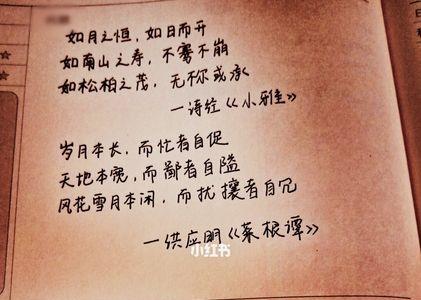 如月之恒，如日而开
如南山之寿，不骞不崩
如松柏之茂，无你或承
—诗经《小雅》
岁月本长，而忙者自促
天地本宽，而鄙者自隘
风花雪月本闲，而扰攘者自冗
—供应明《菜根谭》
小红书